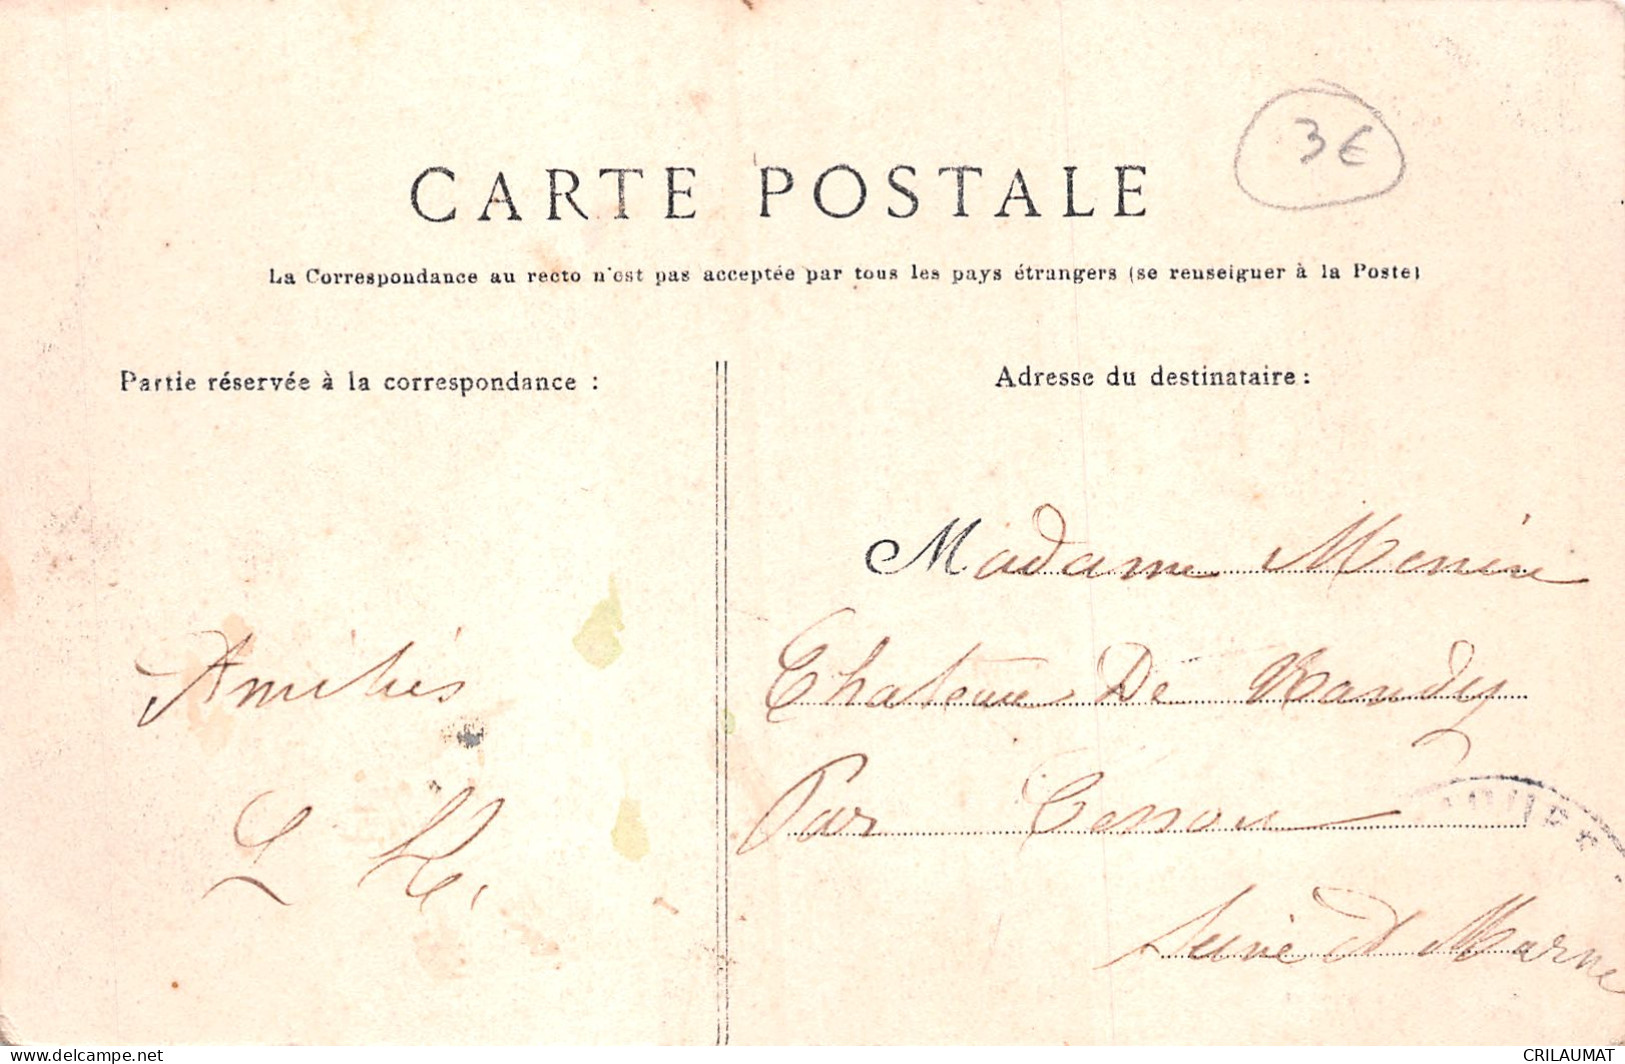 3€
CARTE POSTALE
La Correspondance au recto n'est pas acceptée par tous les pays étrangers (se renseigner à la Poste)
Partie réservée à la correspondance :
Adresse du destinataire :
Madame Menire
Chateau De Nandy
Par Cesson
Seine et Marne
Amitiés
L R.
www.delcampe.net
CRILAUMAT